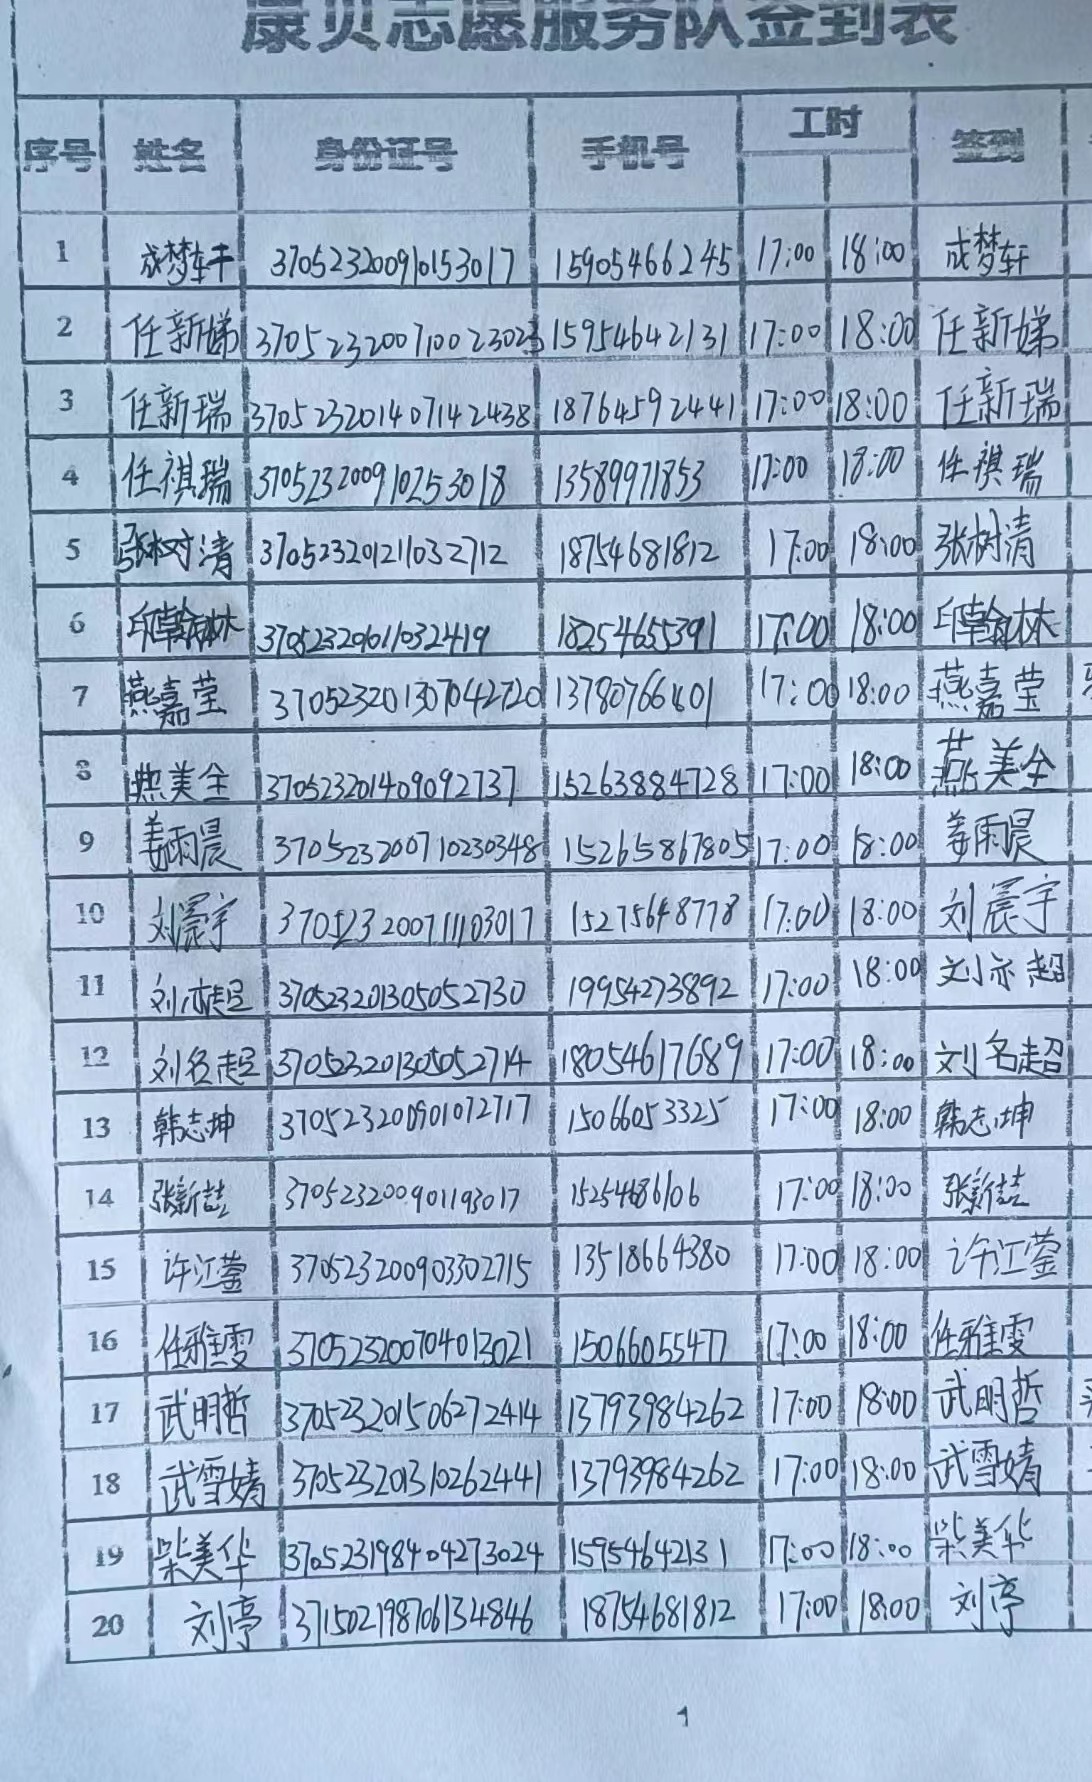 康贝志愿服务队签到表
序号 姓名 身份证号 手机号 工时 签到
1 成梦轩 370523200910153017 15905466245 17:00 18:00 成梦轩
2 任新娣 15954642131 17:00 18:00 任新娣
3 任新瑞 370523201407142438 18764592441 17:00 18:00 任新瑞
4 任祺瑞 370523200910253018 13589971853 17:00 18:00 任祺瑞
5 张树清 370523201211032712 18754681812 17:00 18:00 张树清
6 印翰林 18254655391 17:00 18:00 印翰林
7 燕嘉莹 370523201307042720 17:00 18:00 燕嘉莹
8 燕美全 370523201409092737 15263884728 17:00 18:00 燕美全
9 姜雨晨 370523200710230348 15265867805 17:00 18:00 姜雨晨
10 刘宸宇 370523200711103017 15275648778 17:00 18:00 刘宸宇
11 刘亦超 370523201305052730 19954273892 17:00 18:00 刘亦超
12 刘名超 370523201305052714 18054617689 17:00 18:00 刘名超
13 韩志坤 370523200901072717 15066053325 17:00 18:00 韩志坤
14 张新喆 370523200901193017 15254686106 17:00 18:00 张新喆
15 许江蓥 370523200903302715 13518664380 17:00 18:00 许江蓥
16 任雅雯 370523200704013021 15066055477 17:00 18:00 任雅雯
17 武明哲 370523201506272414 13793984262 17:00 18:00 武明哲
18 武雪婧 370523201310262441 13793984262 17:00 18:00 武雪婧
19 柴美华 370523198404273024 15954642131 17:00 18:00 柴美华
20 刘亭 371502198706134846 18754681812 17:00 18:00 刘亭
1